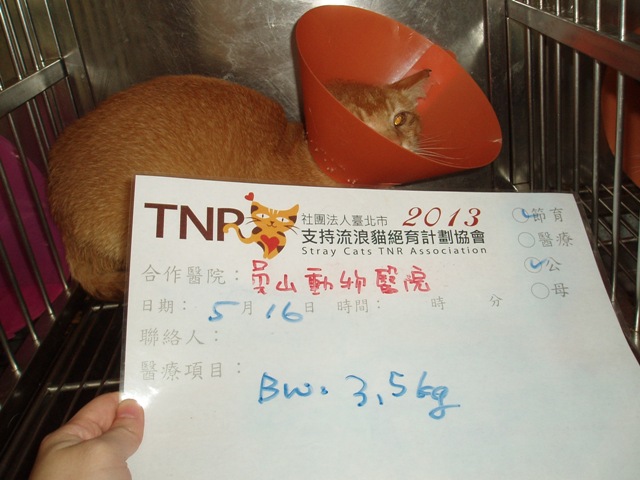 TNR 社團法人臺北市 2013
支持流浪貓絕育計劃協會
Stray Cats TNR Association
節育
醫療
公
母
合作醫院：山動物醫院
日期：5月16日 時間： 時 分
聯絡人：
醫療項目：
BW. 3.5kg